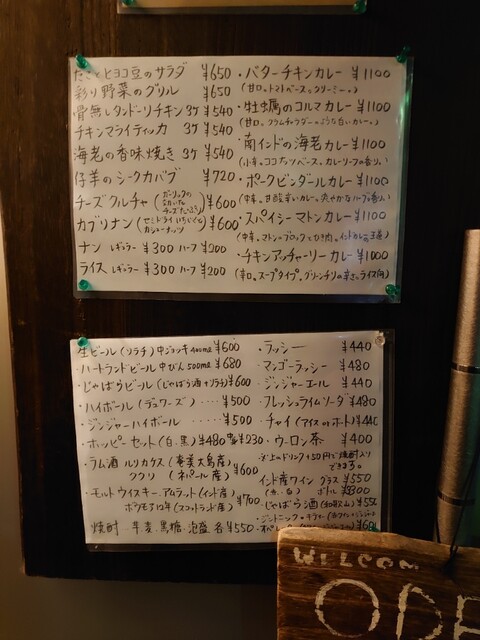 たことヒヨコ豆のサラダ ¥650
彩り野菜のグリル ¥650
骨無しタンドーリチキン 3ケ ¥540
チキンマライティッカ 3ケ ¥540
海老の香味焼き 3ケ ¥540
仔羊のシークカバブ ¥720
チーズクルチャ (ガーリックの効いたチーズたっぷり) ¥600
カブリナン (セミドライいちじくとカシューナッツ) ¥600
ナン レギュラー ¥300 ハーフ ¥200
ライス レギュラー ¥300 ハーフ ¥200
・バターチキンカレー ¥1100
(甘口。トマトベース。クリーミー。)
・牡蠣のコルマカレー ¥1100
(甘口。クラムチャウダーのような白いカレー。)
・南インドの海老カレー ¥1100
(小辛。ココナッツベース。カレーリーフの香り。)
・ポークビンダールカレー ¥1100
(中辛。甘酸辛いカレー。爽やかなハーブの香り)
・スパイシーマトンカレー ¥1100
(中辛。マトンブロックとひき肉。インドカレーの王道)
・チキンアッチャーリーカレー ¥1000
(辛口。スープタイプ。グリーンチリの辛さ。ライス向)
生ビール (ソラチ) 中ジョッキ 400ml ¥600
・ハートランドビール 中びん 500ml ¥680
・じゃばらビール (じゃばら酒+ソラチ) ¥600
・ハイボール (デュワーズ) ‥‥ ¥500
・ジンジャーハイボール ‥‥ ¥500
・ホッピーセット (白、黒) ¥480 中 ¥230
・ラム酒 ルリカケス (奄美大島産)
ククリ (ネパール産) ¥600
・モルトウイスキー アムラット (インド産)
ボウモア12年 (スコットランド産) ¥700
・焼酎 芋、麦、黒糖、泡盛 各 ¥550
・ラッシー ¥440
・マンゴーラッシー ¥480
・ジンジャーエール ¥440
・フレッシュライムソーダ ¥480
・チャイ (アイス or ホット) ¥440
・ウーロン茶 ¥400
以上のドリンク+50円で焼酎入りできます。
インド産ワイン グラス ¥550
(赤・白) ボトル
・じゃばら酒 (和歌山) ¥550
・ジントニック
WELCOM
OPE